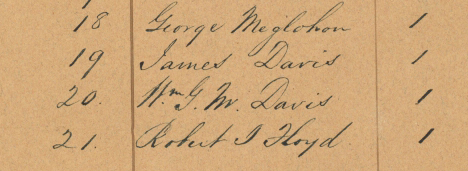 18 George Meglohon 1
19 James Davis 1
20. Wm. G. M. Davis 1
21. Robert I Floyd 1